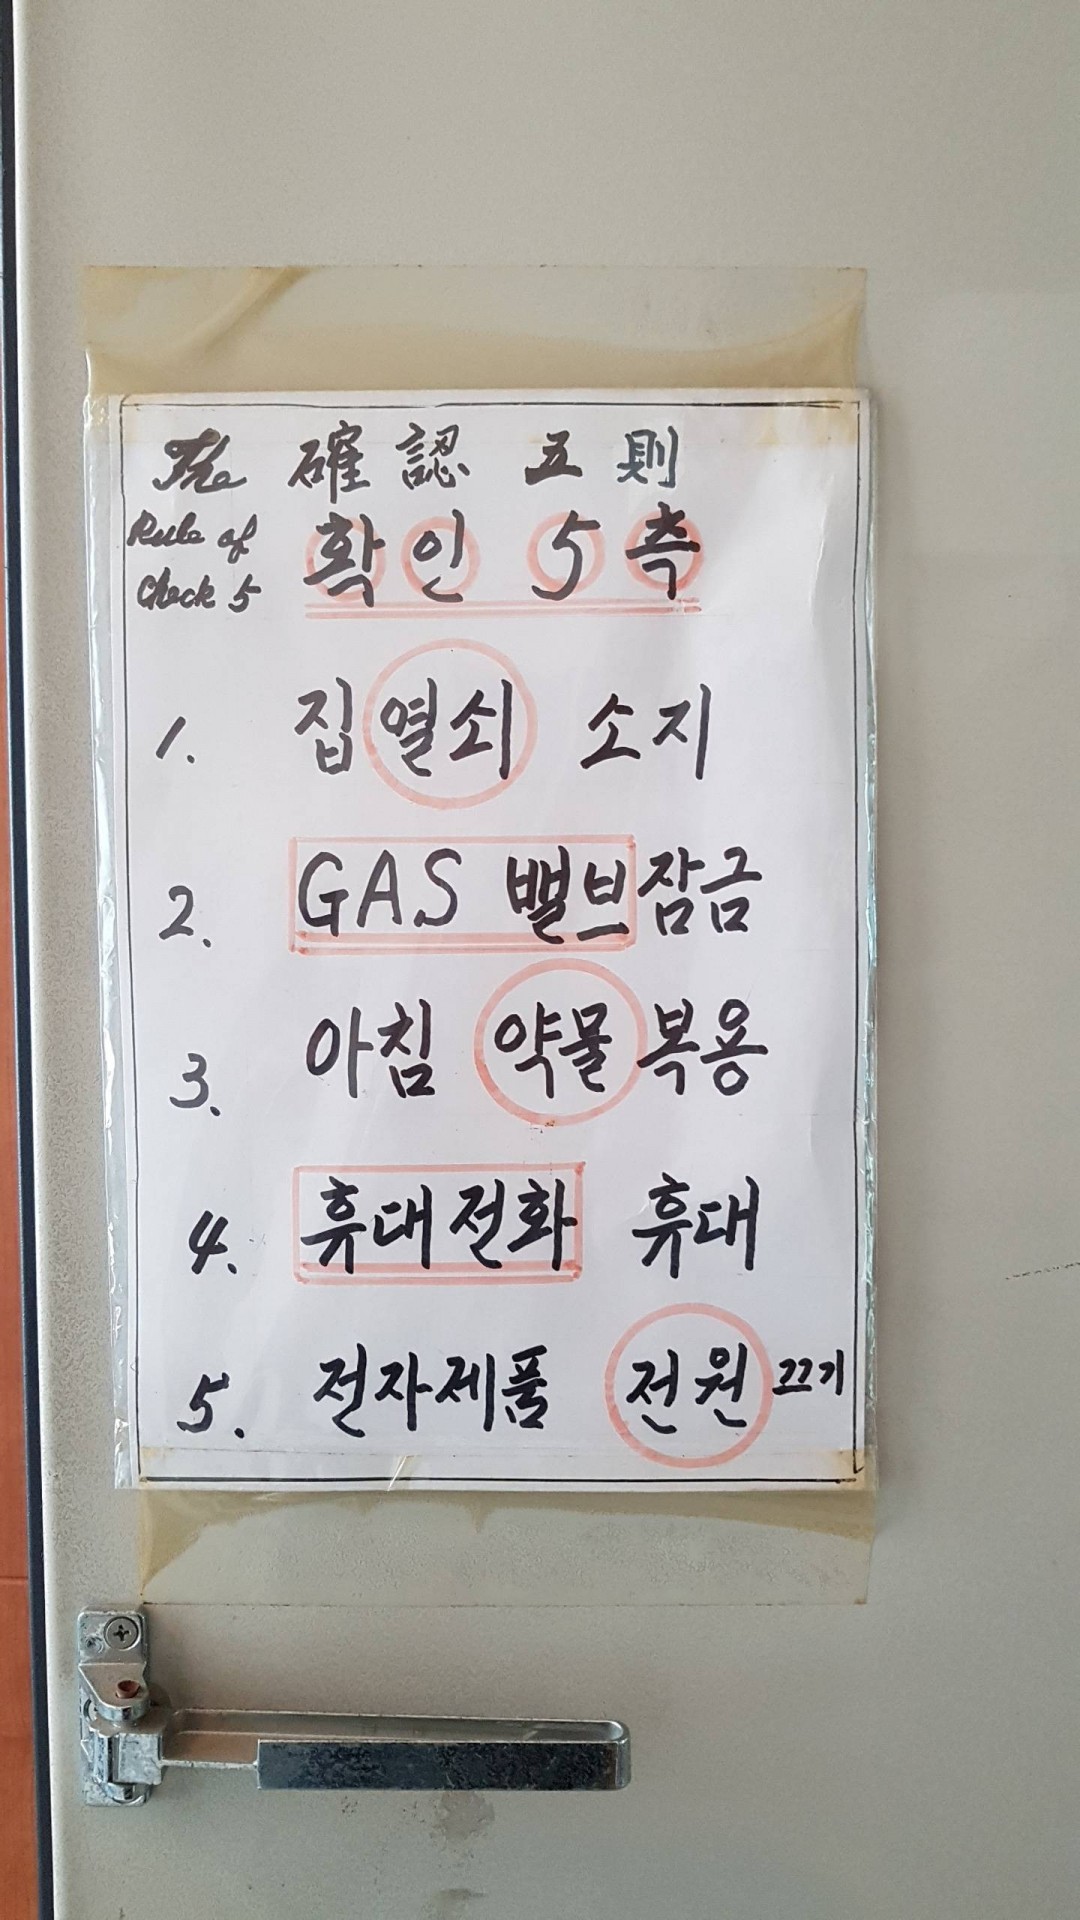 The 確認 五則
Rule of
Check 5
확인 5측
1. 집열쇠 소지
2. GAS 밸브잠금
3. 아침 약물복용
4. 휴대전화 휴대
5. 전자제품 전원 끄기